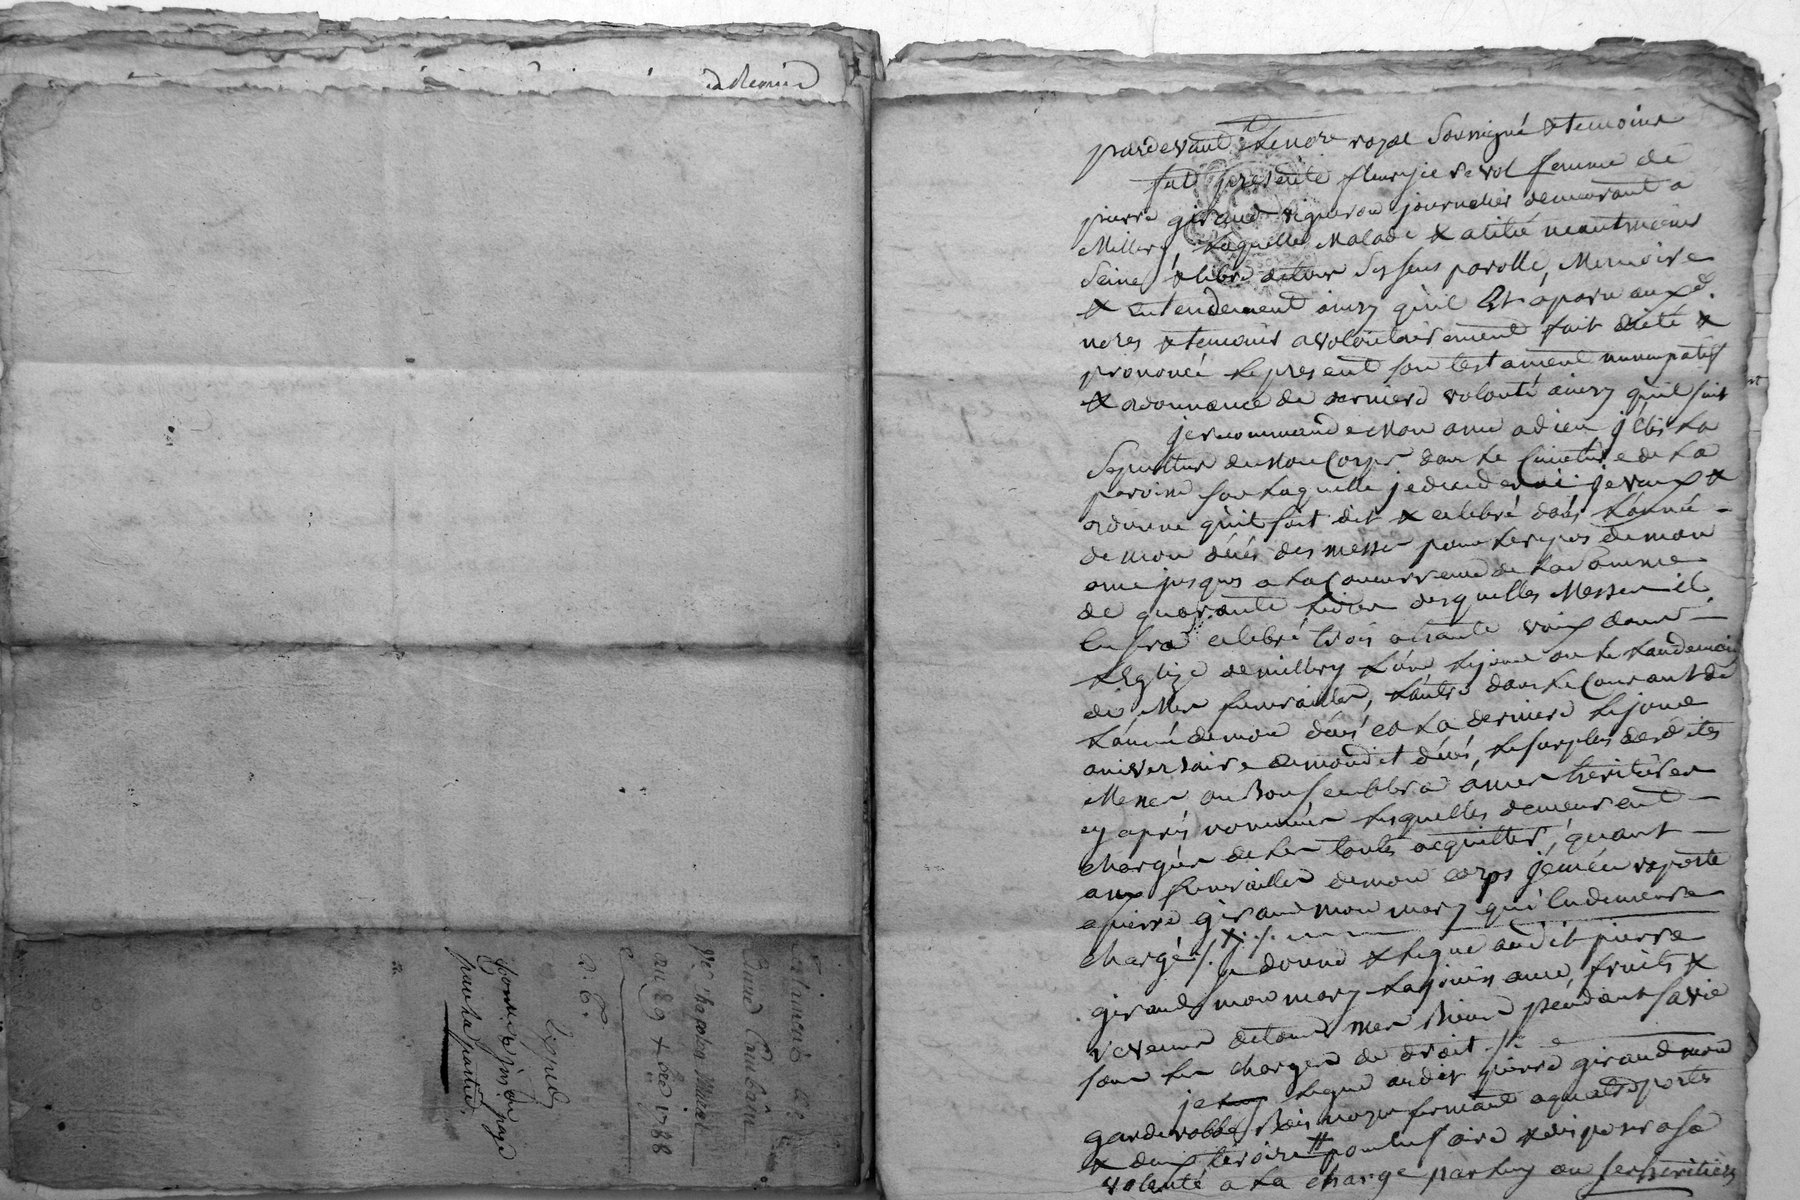 pardevant le no.re royal soussigné & temoins
fut presente fleurie revol femme de
pierre giraud vigneron journalier demeurant a
Millery, laquelle Malade & neantmoins
Saine & libre de tous ses sens parolle, Memoire
& entendement ainsy qu'il Est aparu auxd.
no.res & temoins a volontairement fait dicté &
prononcé le present son testament nuncupatif
& ordonnance de derniere volonté ainsy quil suit
je recommande Mon ame a dieu j'elis la
Sepulture de Mon Corps dans le Cimetiere de la
paroisse sous laquelle je deciderai. je veux &
ordonne qu'il soit dit & celebré dans l'année
de mon décés des messes pour le repos de mon
ame jusques a la Concurrence de la somme
de quarante livres desquelles Messes il
En sera celebré trois a haute voix dans
L'Eglize de millery L'une le jour ou le landemain
de Mes funerailles, L'autre dans le Courant de
L'année de mon décés et la derniere le jour
aniversaire de mondit décés, le surplus desdites
Messes ou Bon semblera a mes heritieres
cy aprés nommées lesquelles demeurent
chargées de les toutes acquitter, quant
aux funerailles de mon corps je m'en raporte
a pierre giraud mon mary qui En demeure
chargé
je donne & legue audit pierre
giraud mon mary la jouissance, fruits &
revenus de tous mes Biens pendant sa vie
sous les charges de droit
je legue audit pierre giraud mon
garderobbe Bois noyer fermant a quatre portes
& deux tiroirs # pour En faire & disposer a sa
volonté a la charge par luy ou ses heritiers
Testament de
Anne
au 89 & 1788
a. C.
par la partie.